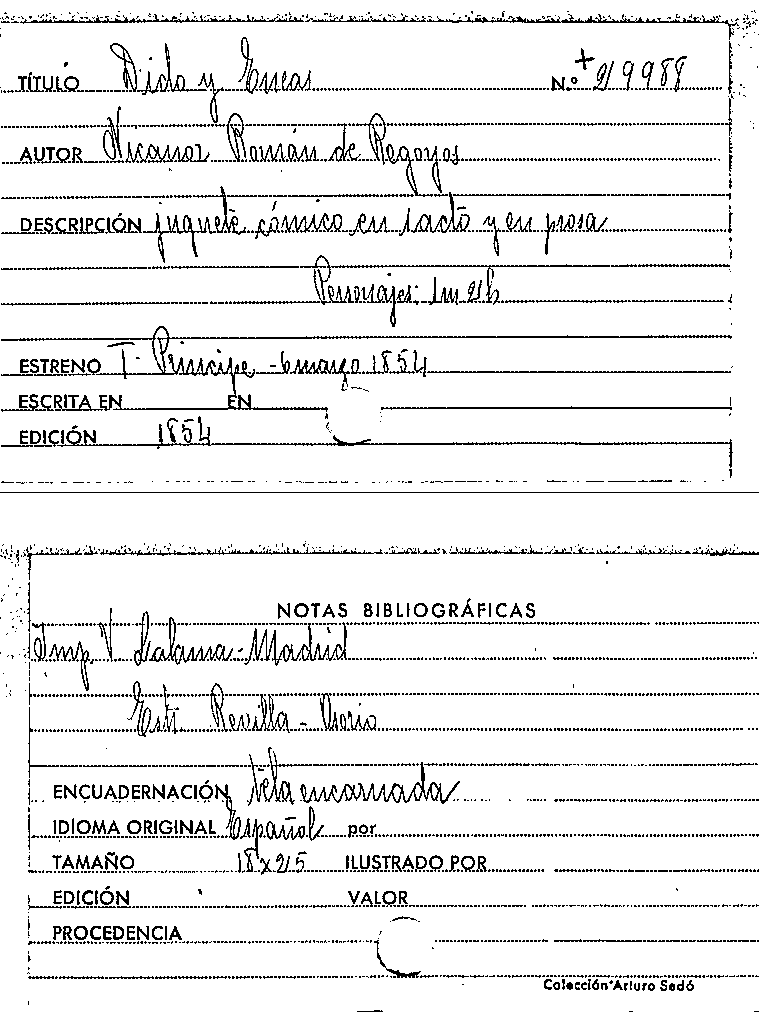 TÍTULO Dido y Eneas N.º + 29988
AUTOR Nicanor Román de Regoyos
DESCRIPCIÓN juguete cómico en 1 acto y en prosa
Personajes: 1m 2h
ESTRENO T. Principe - 6 marzo 1854
ESCRITA EN EN
EDICIÓN 1854
NOTAS BIBLIOGRÁFICAS
Imp V. Lalama - Madrid
Estr. Revilla - Osorio
ENCUADERNACIÓN tela encarnada
IDIOMA ORIGINAL Español por
TAMAÑO 18x25 ILUSTRADO POR
EDICIÓN VALOR
PROCEDENCIA
Colección Arturo Sedó